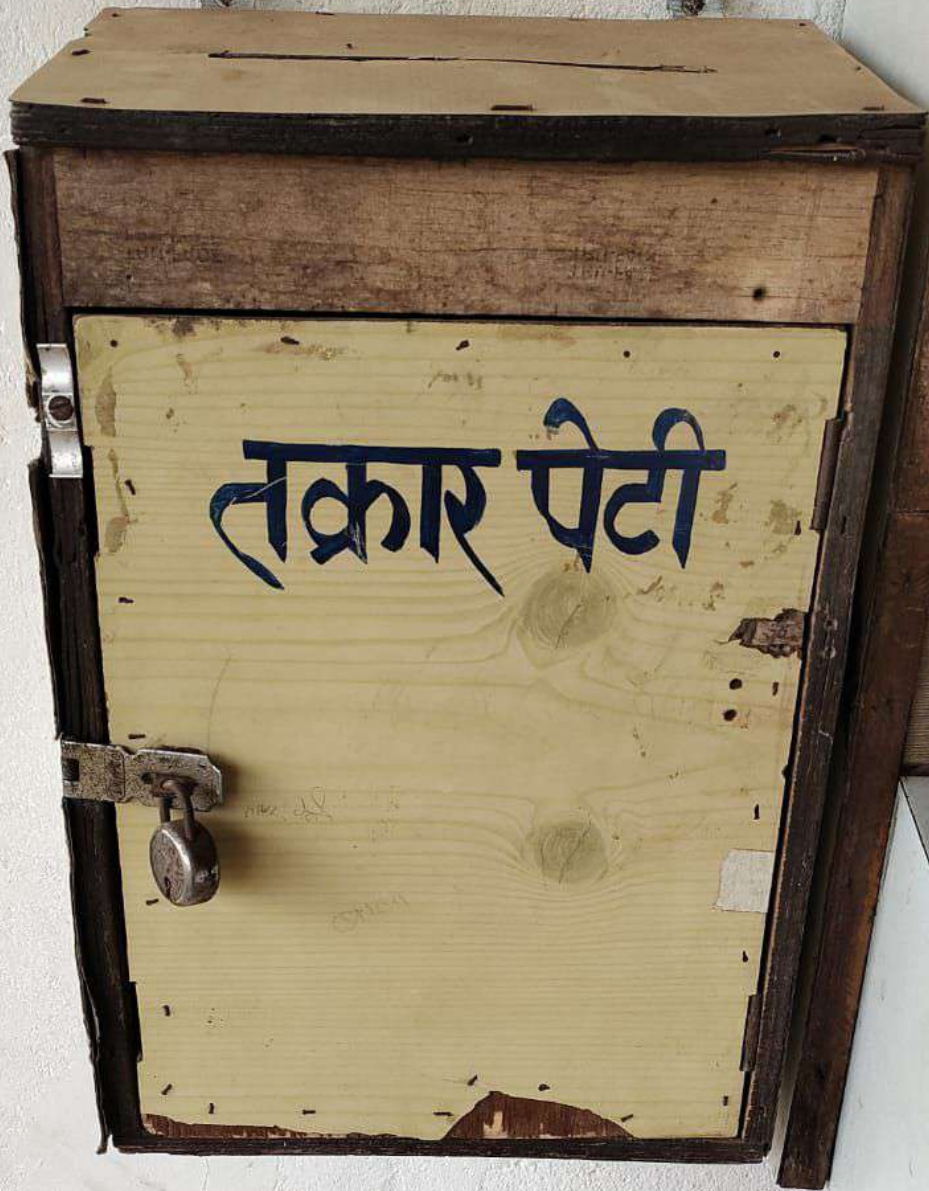 तक्रार पेटी